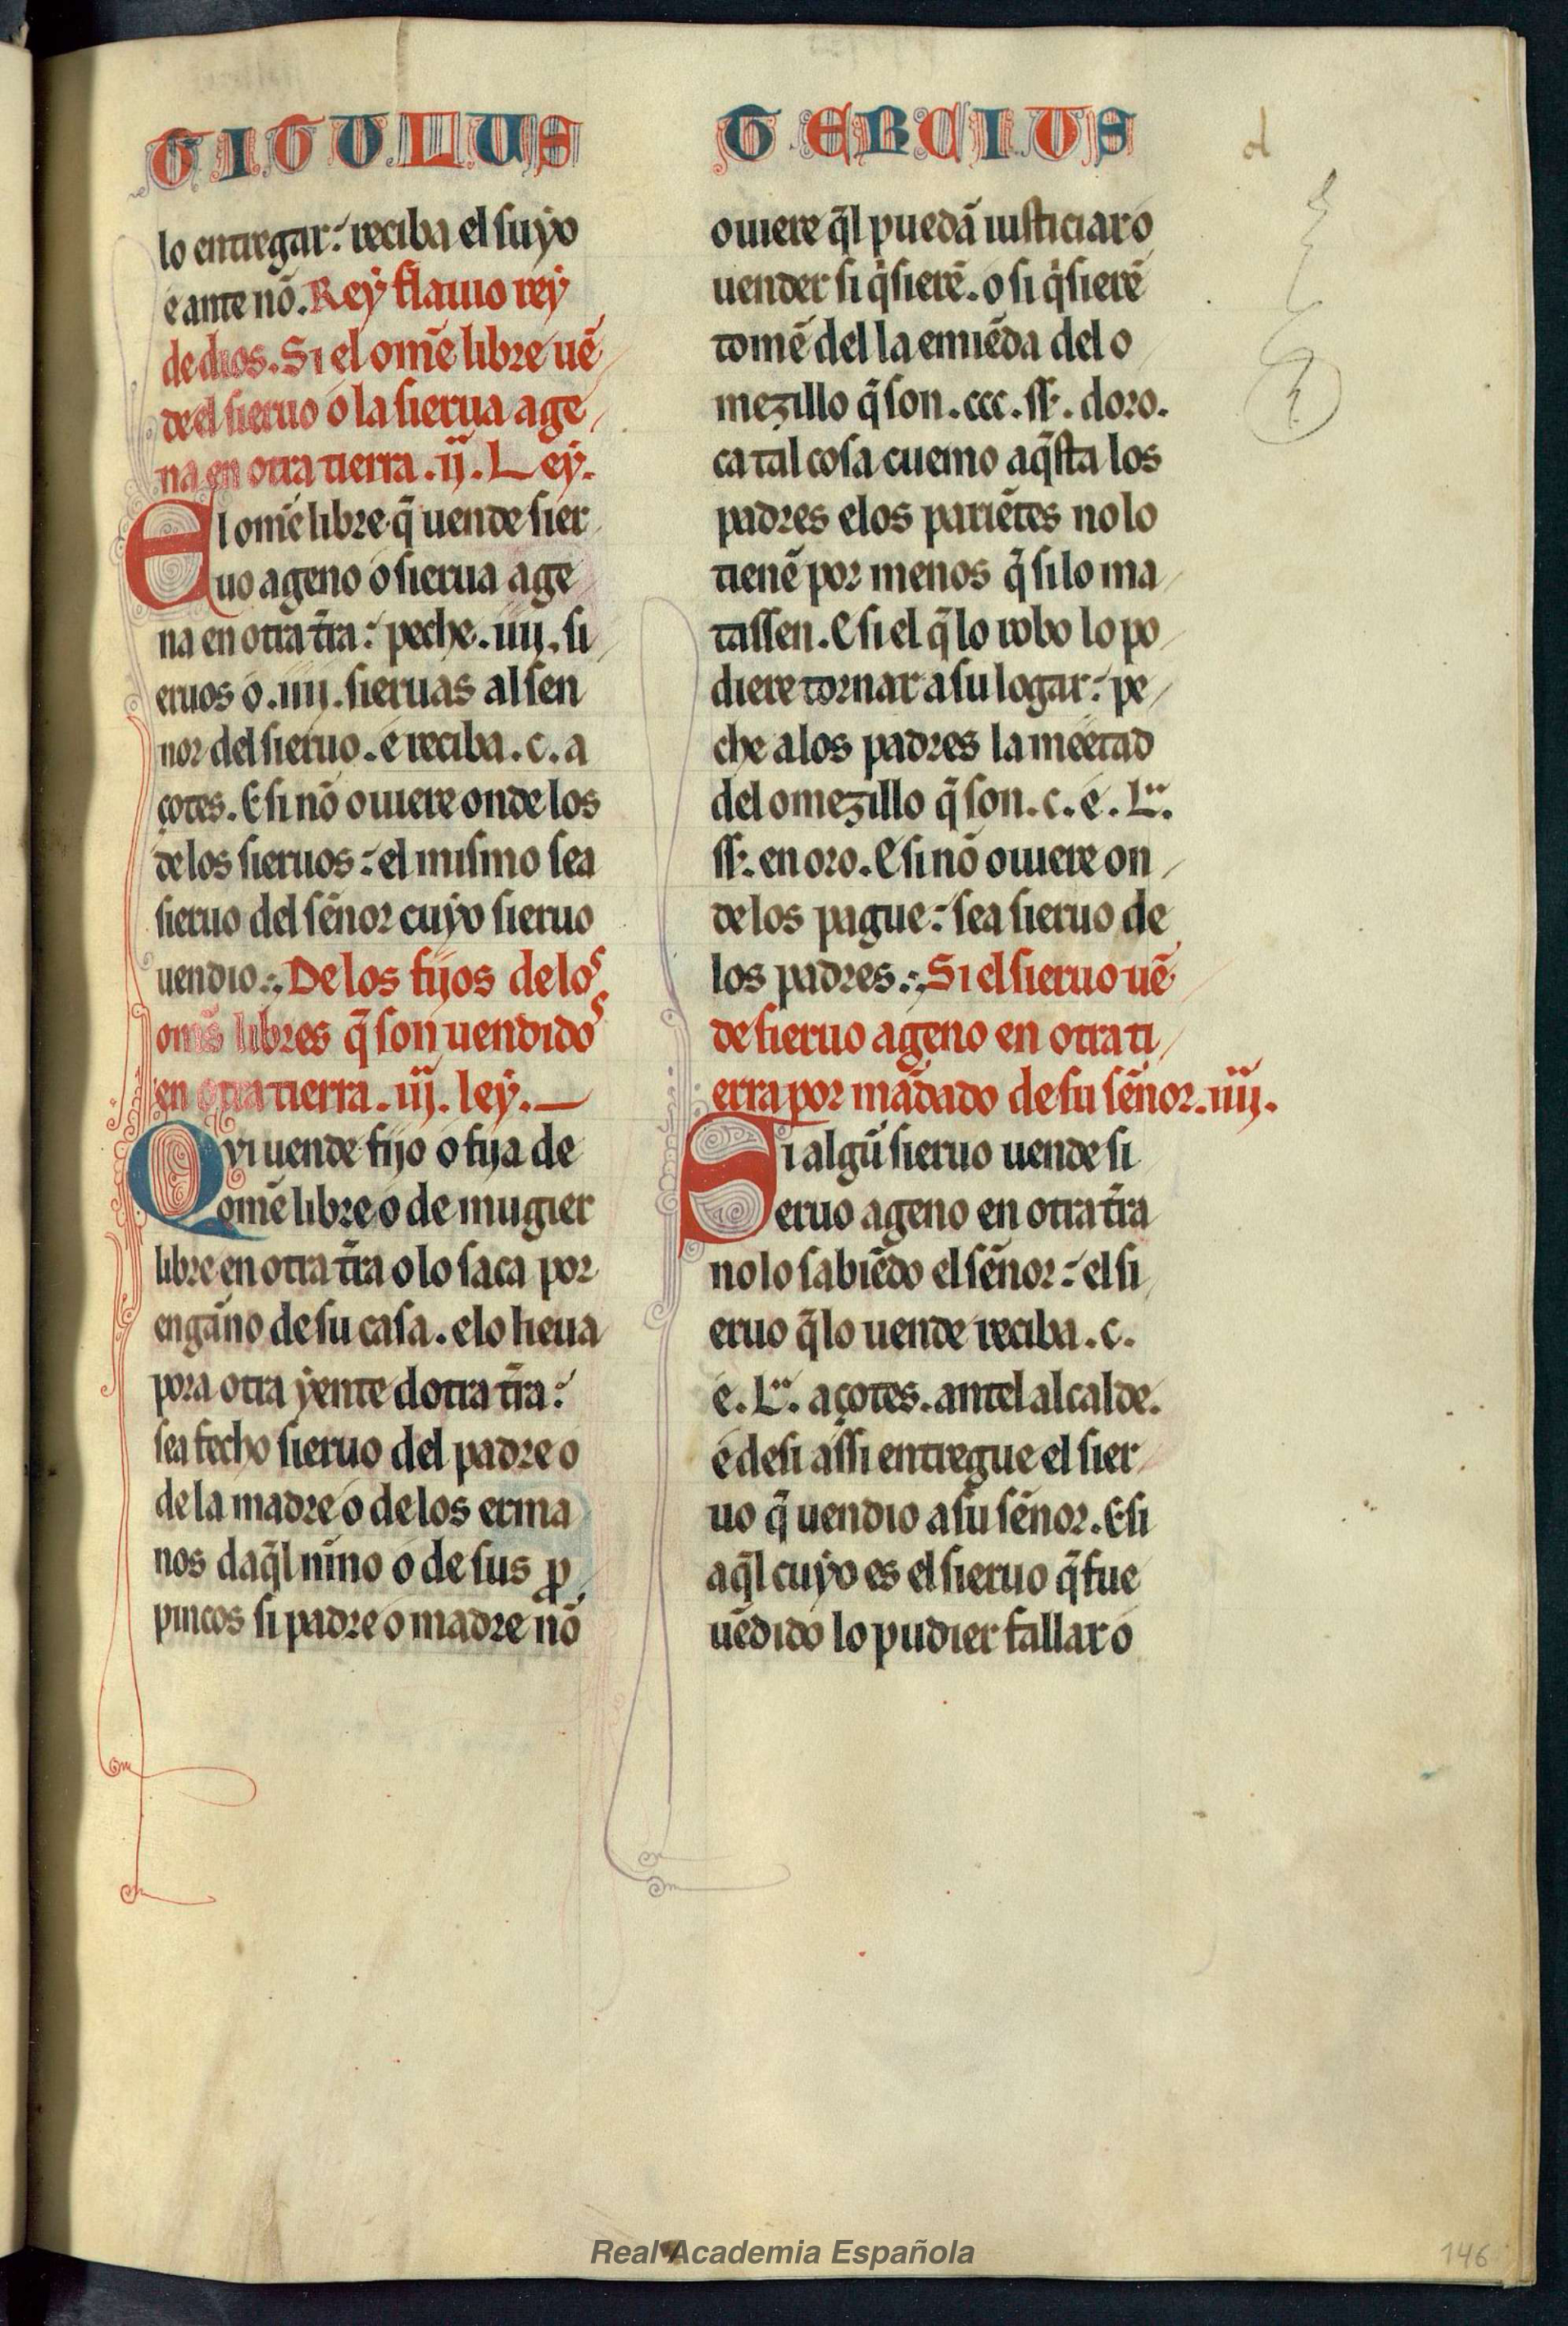 TITULUS
TERCIUS
lo entregar: reciba el suyo
e ante nõ. Rey flauio rey
de dios. Si el omẽ libre uẽ
de el sieruo o la sierua age
na en otra tierra .ij. Ley.
El omẽ libre q̃ uende sier
uo ageno o sierua age
na en otra tr̃a: peche .iiij. si
eruos o .iiij. sieruas al sen
nor del sieruo. e reciba .c. a
çotes. E si nõ ouiere onde los
de los sieruos: el mismo sea
sieruo del sẽnor cuyo sieruo
uendio.: De los fijos de los
oms̃ libres q̃ son uendidos
en otra tierra .iij. ley.
Qvi uende fijo o fija de
omẽ libre o de mugier
libre en otra tr̃a o lo saca por
engãno de su casa. e lo lieua
pora otra yente dotra tr̃a:
sea fecho sieruo del padre o
de la madre o de los erma
nos daq̃l nĩno o de sus ꝓ
pincos si padre o madre nõ
ouiere q̃l puedã iusticiar o
uender si q̃sierẽ. o si q̃sierẽ
tomẽ del la emiẽda del o
mezillo q̃ son .ccc. ss̃. doro.
ca tal cosa cuemo aq̃sta los
padres e los pariẽtes no lo
tienẽ por menos q̃ si lo ma
tassen. E si el q̃ lo robo lo po
diere tornar a su logar: pe
che a los padres la meetad
del omezillo q̃ son .c. e .L.
ss̃. en oro. E si nõ ouiere on
de los pague: sea sieruo de
los padres.: Si el sieruo uẽ
de sieruo ageno en otra ti
erra por mãdado de su sẽnor .iiij.
Si algũ sieruo uende si
eruo ageno en otra tr̃a
no lo sabiẽdo el sẽnor: el si
eruo q̃ lo uende reciba .c.
e .L. açotes. antel alcalde.
e desi assi entregue el sier
uo q̃ uendio a su sẽnor. E si
aq̃l cuyo es el sieruo q̃ fue
uẽdido lo pudier fallar o
Real Academia Española
146